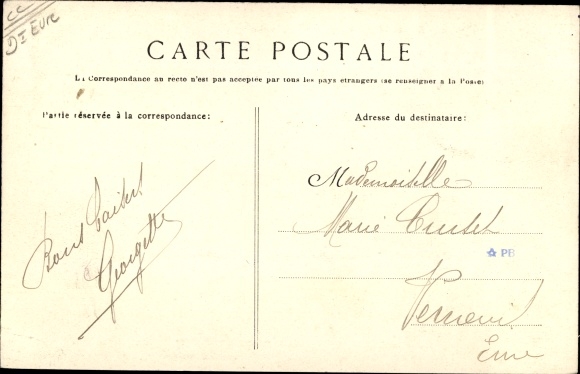 CC
DI EUR
CARTE POSTALE
La Correspondance au recto n'est pas acceptée par tous les pays étrangers (se renseigner à la Poste)
Partie réservée à la correspondance:
Adresse du destinataire:
Bons baisers
Georgette
Mademoiselle
Marie
PB
Verneuil
Eure